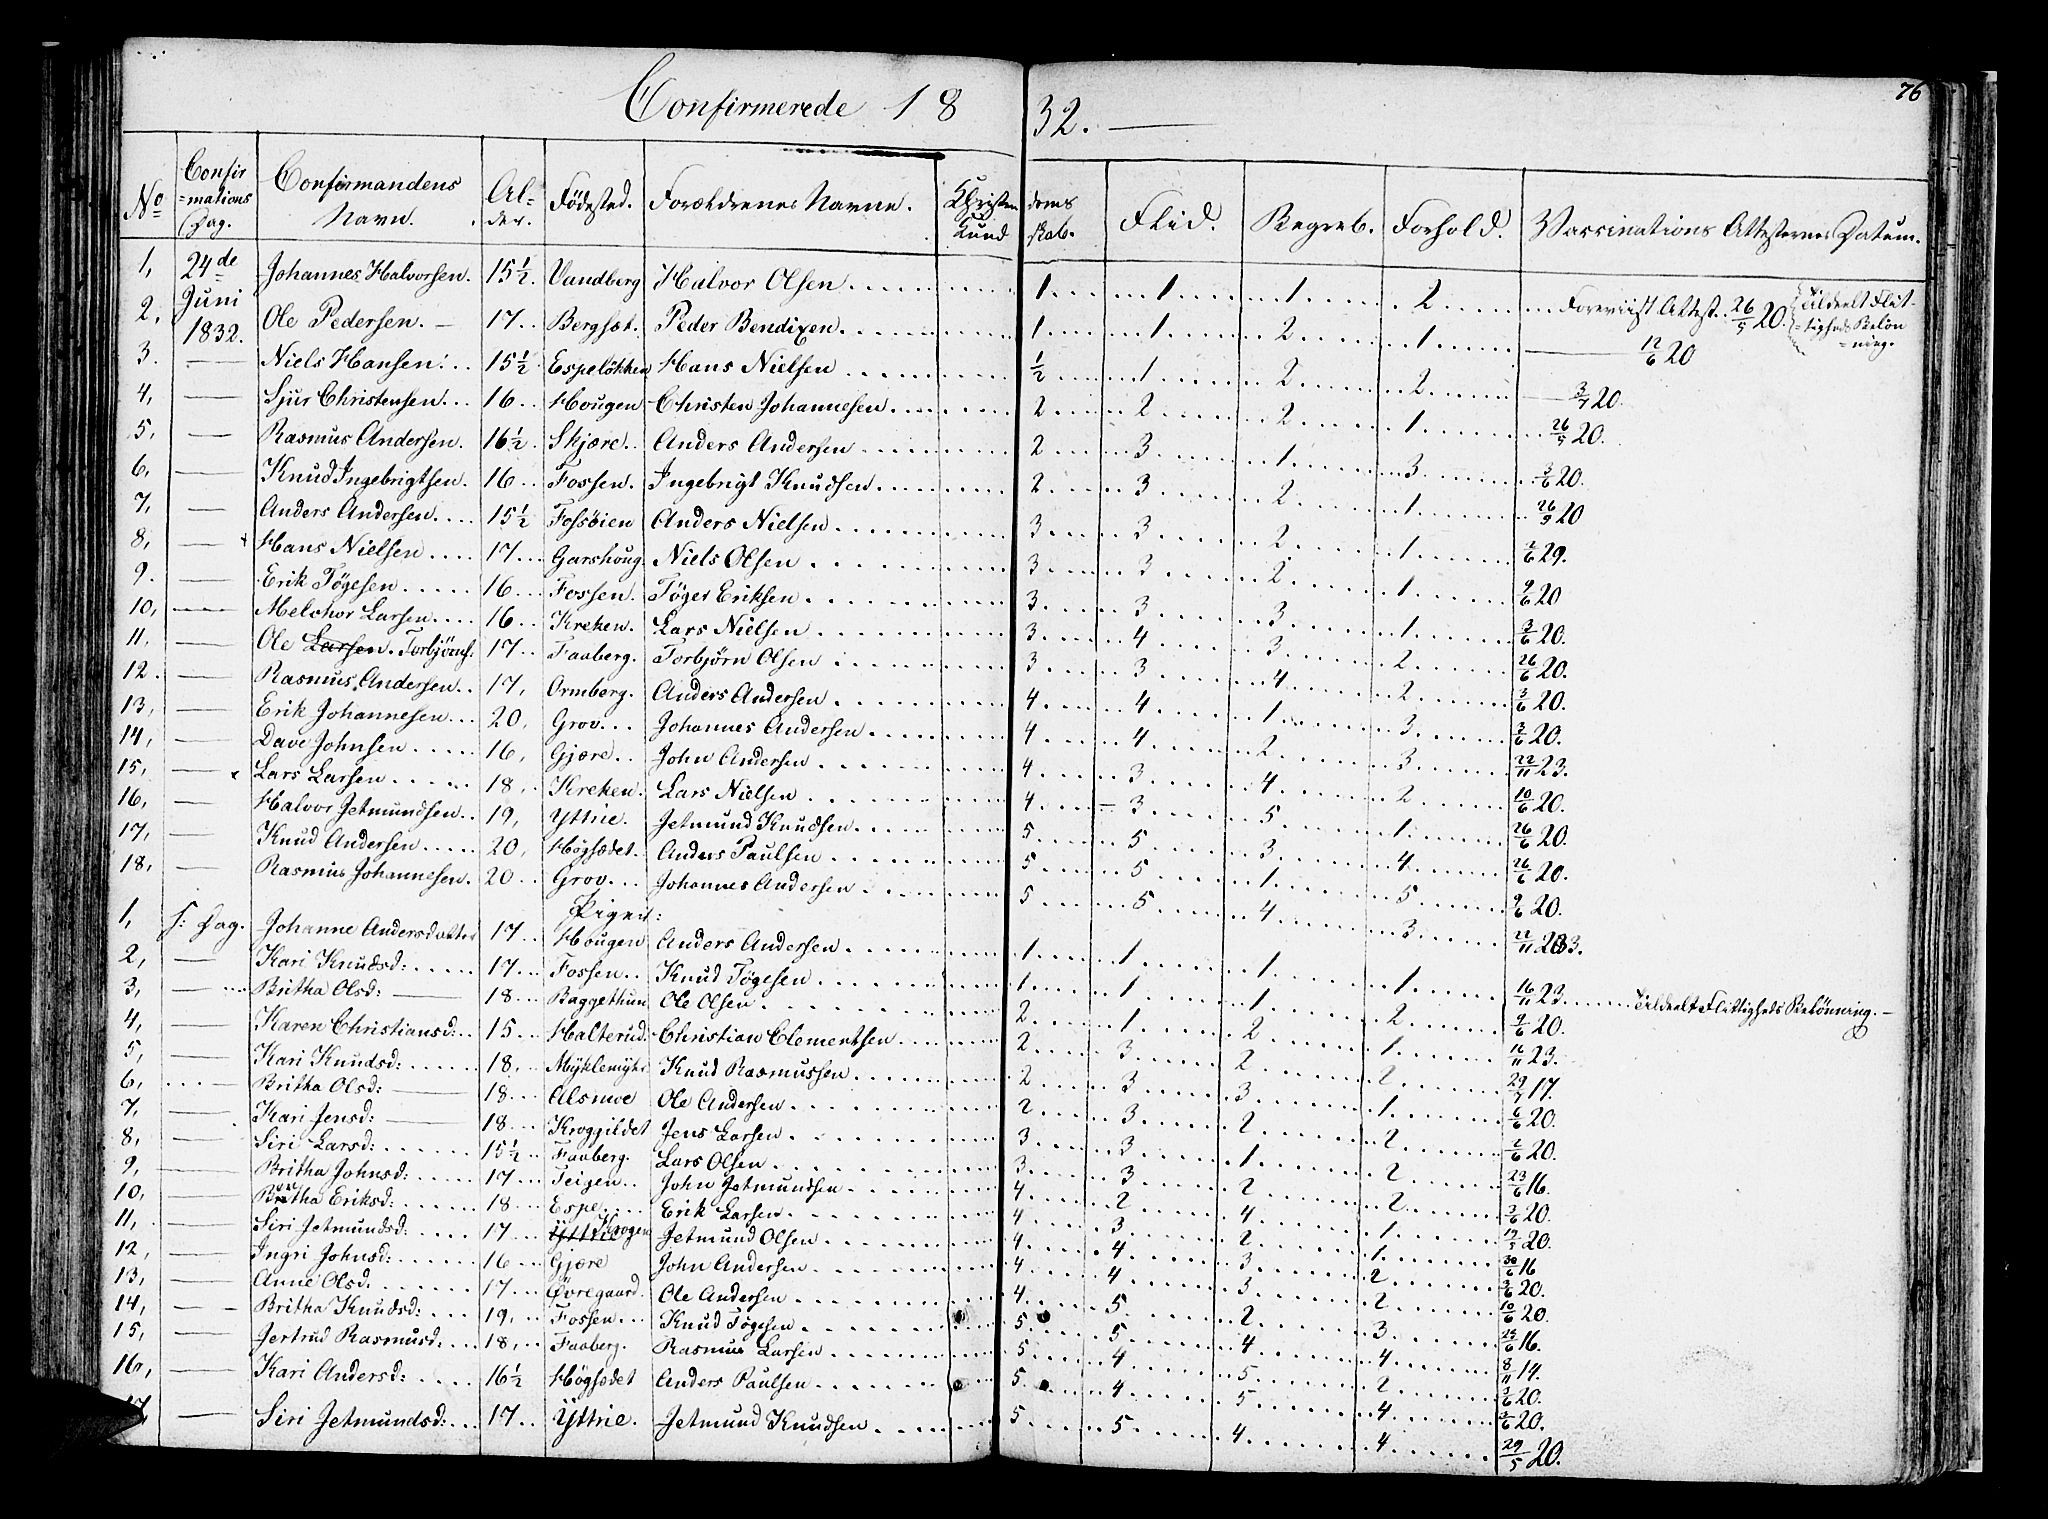 76
Confirmerede 1832.
No Confirmations Dag. Confirmandens Navn. Alder. Födested. Forældrenes Navne. Christendoms Kundskab. Flid. Begreb. Forhold. Vaccinations Attesternes Datum.
1, 24de Juni 1832. Johannes Halvorsen. 15½. Vandberg Halvor Olsen 1 1 1 2 Foreviist Attest. 26/5 20. Tildeelt Flittigheds Belönning.
2, Ole Pedersen. 17 Bergsæt. Peder Bendixen 1 1 2 1 — 12/6 20
3. — Niels Hansen. 15½ Espelökken Hans Nielsen ½ 1 2 2 — 3/7 20.
4, — Sjur Christensen 16 Hougen Christen Johannesen 2 2 2 1 26/5 20.
5, — Rasmus Andersen. 16½ Skjære Anders Andersen 2 3 1 3 3/6 20.
6, — Knud Ingebrigtsen. 16 Fossen. Ingebrigt Knudsen 2 3 2 1 26/9 20
7, — Anders Andersen 15½ Fossöien Anders Nielsen 3 3 2 1 2/6 29.
8, — Hans Nielsen 17 Garshoug Niels Olsen 3 3 2 1 9/6 20
9. — Erik Tögesen 16 Fossen. Töger Eriksen 3 3 3 1 3/6 20.
10, — Melchor Larsen 16 Kreken. Lars Nielsen 3 4 3 2 26/6 20.
11. — Ole Larsen. Torbjörns: 17 Faaberg. Torbjörn Olsen 3 3 4 2 3/6 20.
12. — Rasmus Andersen 17, Ormberg. Anders Andersen 4 4 1 3 3/6 20.
13, — Erik Johannesen 20, Grov Johannes Andersen 4 4 2 3 22/11 23.
14, — Dave Johnsen 16, Gjære John Andersen 4 3 4 2 10/6 20.
15, — Lars Larsen 18, Kreken. Lars Nielsen 4 3 5 1 26/6 20.
16, — Halvor Jetmundsen 19, Yttrie. Jetmund Knudsen 5 5 3 4 26/6 20.
17, — Knud Andersen 20, Högsædet. Anders Paulsen 5 5 1 5 9/6 20.
18, — Rasmus Johannesen. 20 Grov Johannes Andersen 5 5 4 3 22/11 23.
Piger:
1, s: Dag. Johanne Andersdatter 17 Hougen Anders Andersen 1 1 1 1 16/11 23 Tildeelt Flittigheds Belönning.
2, — Kari Knudsd: 17 Fossen Knud Tögesen 1 1 1 2 9/6 20.
3, — Britha Olsd: 18 Baggethun Ole Olsen 2 1 2 1 16/11 23.
4, — Karen Christiansd: 15 Halterud Christian Clementsen 2 3 2 2 29/7 17.
5, — Kari Knudsd: 18, Myklemyhr Knud Rasmussen 2 3 3 1 6/6 20.
6, — Britha Olsd: 18 Alsmoe Ole Andersen 2 3 2 2 2/6 20.
7, — Kari Jensd: 18 Krogjildet Jens Larsen 3 3 1 2 23/6 16.
8, — Siri Larsd: 15½ Faaberg. Lars Olsen 3 3 2 2 3/6 20.
9, — Britha Johnsd: 17 Teigen John Jetmundsen 4 2 4 1 19/5 20.
10, — Britha Eriksd: 18 Espe Erik Larsen 4 3 2 1 30/6 16
11, — Siri Jetmundsd: 17 Yttrie Krogen Jetmund Olsen 4 4 3 2 3/6 20.
12, — Ingri Johnsd: 16 Gjære John Andersen 4 4 3 2 10/6 20.
13, — Anne Olsd. 17 Övregaard. Ole Andersen 4 5 2 3 23/6 16.
14, — Britha Knudsd: 19, Fossen Knud Tögesen 5 5 4 4 8/11 14.
15, — Jertrud Rasmusd: 18, Faaberg. Rasmus Larsen 5 4 5 2 3/6 20.
16, — Kari Andersd: 16½ Högsædet Anders Paulsen 5 4 5 4 3/6 20.
17, — Siri Jetmundsd: 17 Yttrie. Jetmund Knudsen 5 5 4 4 29/5 20.